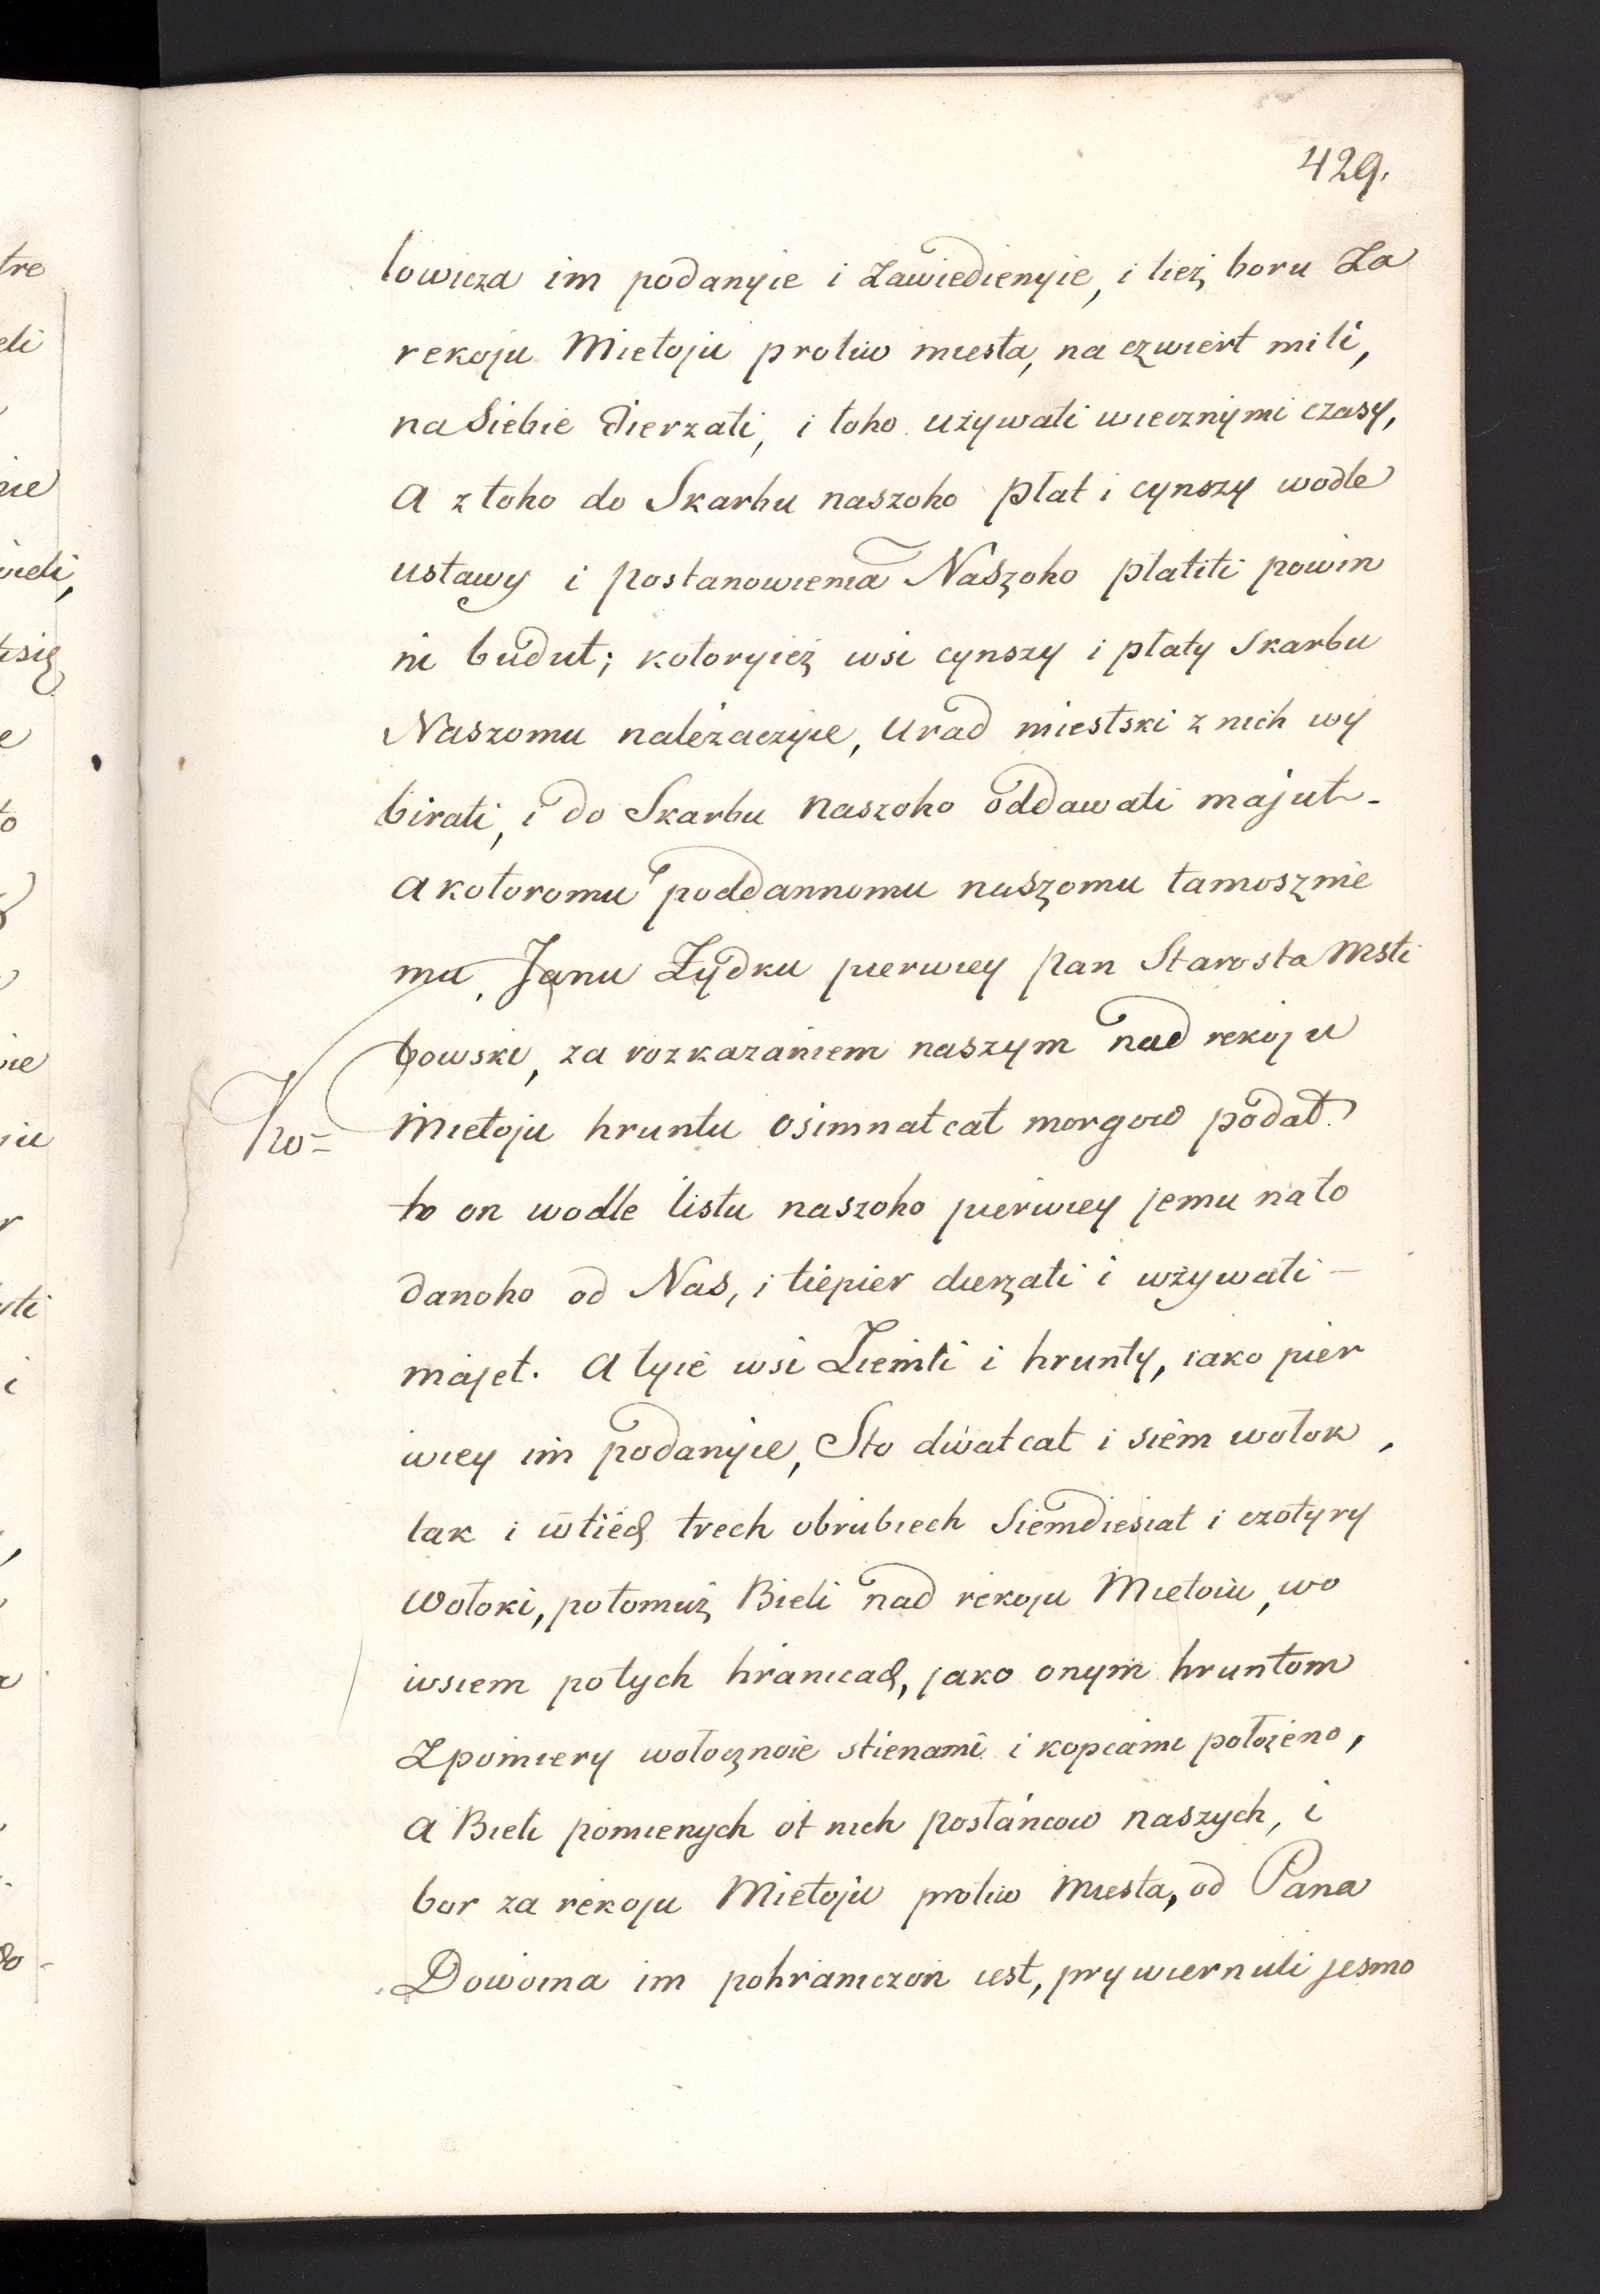 429.
lowicza im podanyie i zawiedienyie, i tież boru za
rekoju Mietoju protiw miesta, na czwiert mili,
na Siebie dierzati, i toho używati wiecznymi czasy,
a z toho do Skarbu naszoho płat i cynszy wodle
ustawy i postanowienia Naszoho płatiti powin
ni budut; kotoryież wsi cynszy i płaty Skarbu
Naszomu należaczyie, Urad miestski z nich wy
birati, i do Skarbu naszoho oddawati majut-
a kotoromu poddannomu naszomu tamosznie
mu, Janu Żydku pierwiey pan Starosta Msti
bowski, za rozkazaniem naszym nad rekoju
Ko= Mietoju hruntu osimnatcat morgow podał
to on wodle listu naszoho pierwiey jemu na to
danoho od Nas, i tiepier dierżati i wżywati -
majet. A tyie wsi Ziemli i hrunty, iako pier
wiey im podanyie, Sto dwatcat i siem wołok,
tak i w tiech trech obrubiech Siemdiesiat i czotyry
Wołoki, potomuż Bieli nad rekoju Mietoiu, wo
wsiem po tych hranicach, jako onym hruntom
z pomiery wołocznoie stienami i kopcami położeno,
a Bieli pomienych ot nich posłańcow naszych, i
bor za rekoju Mietoju protiw Miesta, od Pana
Dowoina im pohraniczon iest, prywiernuli jesmo
tre
eli
nie
wieli,
tsię
e
to
nie
niu
r
yti
i
do-